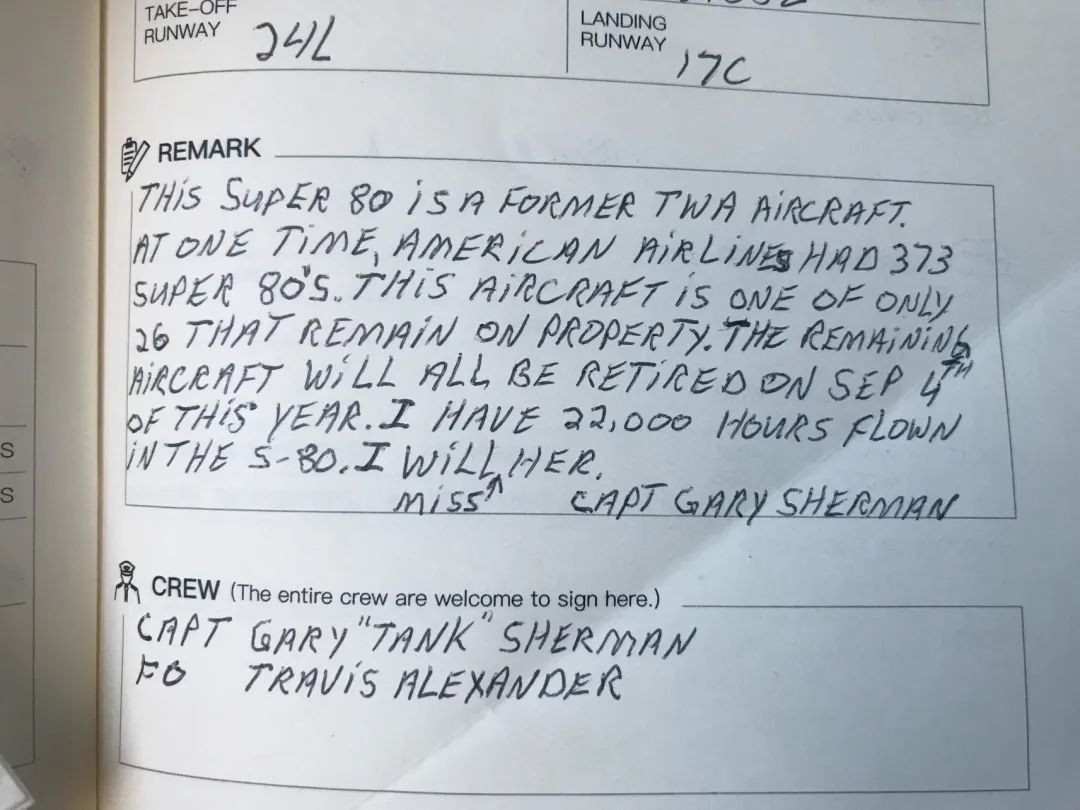 TAKE-OFF
RUNWAY 24L
LANDING
RUNWAY 17C
REMARK
THIS SUPER 80 IS A FORMER TWA AIRCRAFT.
AT ONE TIME, AMERICAN AIRLINES HAD 373
SUPER 80'S. THIS AIRCRAFT IS ONE OF ONLY
26 THAT REMAIN ON PROPERTY. THE REMAINING
AIRCRAFT WILL ALL BE RETIRED ON SEP 4TH
OF THIS YEAR. I HAVE 22,000 HOURS FLOWN
IN THE S-80. I WILL HER.
MISS CAPT GARY SHERMAN
CREW (The entire crew are welcome to sign here.)
CAPT GARY "TANK" SHERMAN
FO TRAVIS ALEXANDER
S
S